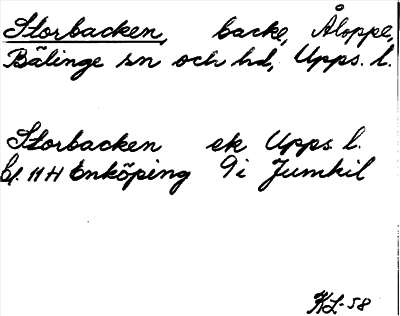 Storbacken, backe, Åloppe,
Bälinge sn och hd, Upps. l.
Storbacken ek Upps l.
bl. 11H Enköping 9i Jumkil
KL-58